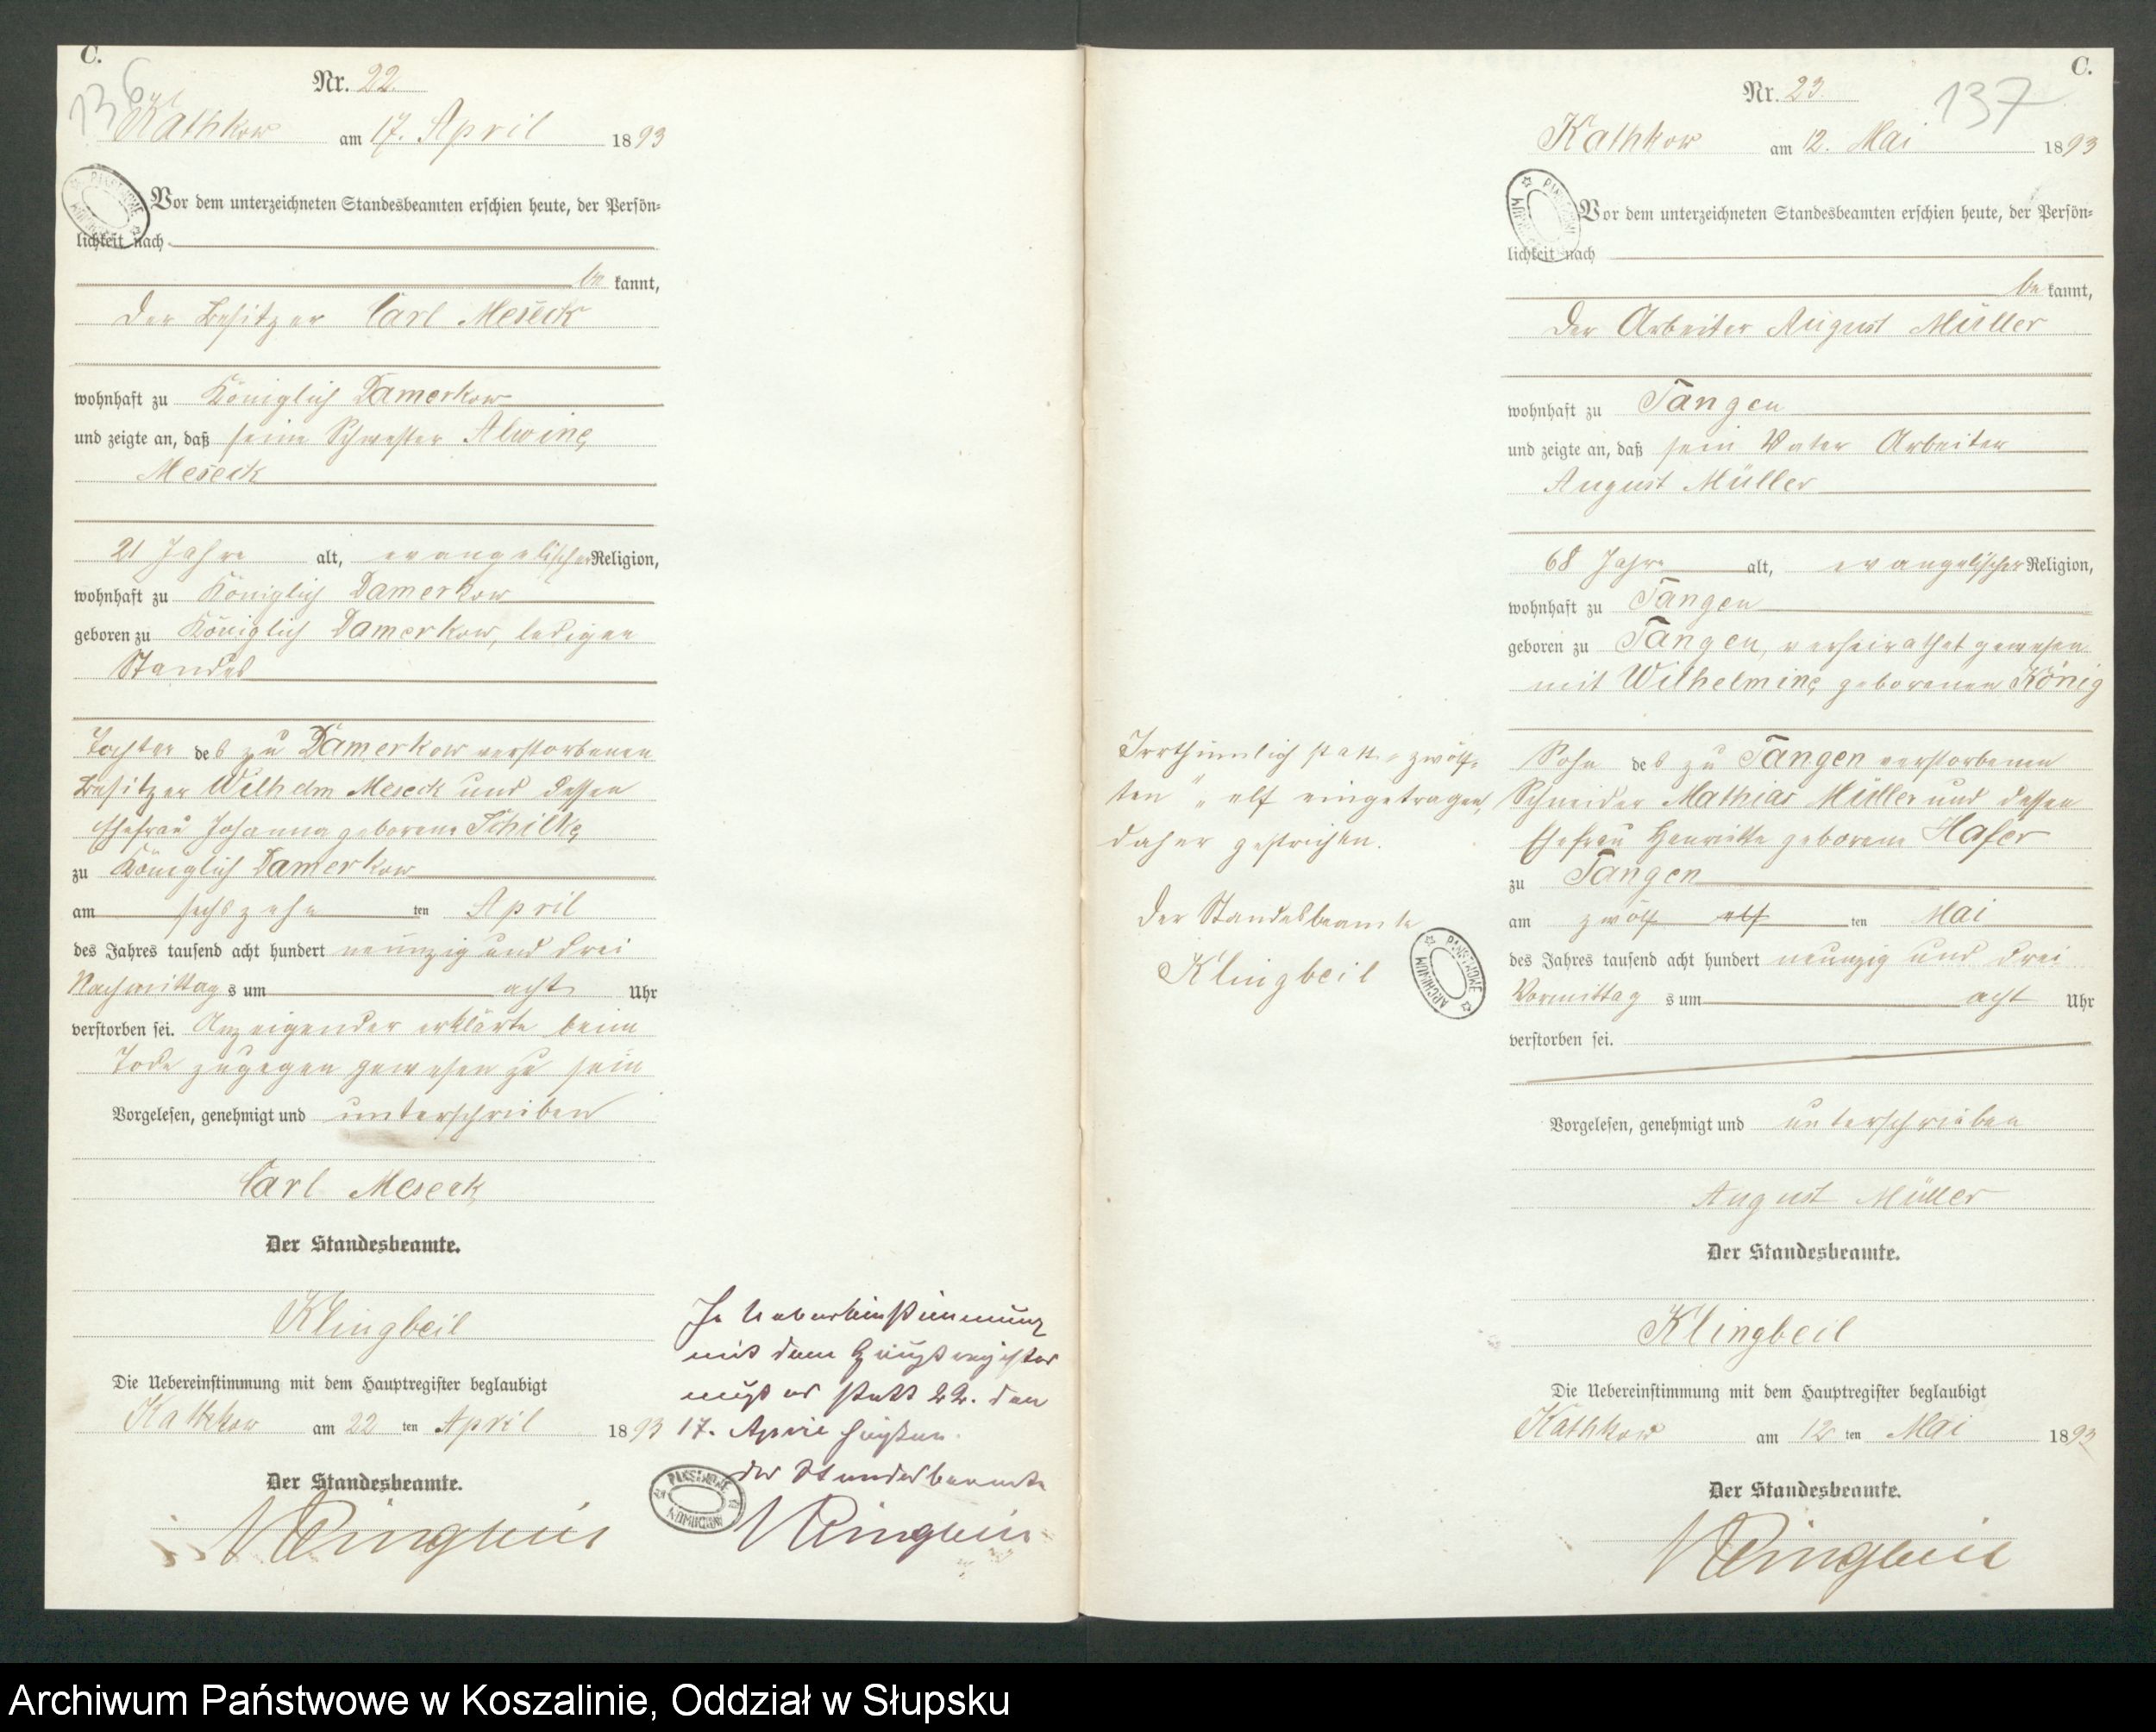 C.
136
Nr. 22.
Kathkow am 17. April 1893
Vor dem unterzeichneten Standesbeamten erschien heute, der Persön-
lichkeit nach
be kannt,
der Besitzer Carl Meseck
wohnhaft zu Königlich Damerkow
und zeigte an, daß seine Schwester Alwine
Meseck
21 Jahre alt, evangelischer Religion,
wohnhaft zu Königlich Damerkow
geboren zu Königlich Damerkow, ledigen
Standes
Tochter des zu Damerkow verstorbenen
Besitzer Wilhelm Meseck und dessen
Ehefrau Johanna geborene Schilke
zu Königlich Damerkow
am sechszehn ten April
des Jahres tausend acht hundert neunzig und drei
Nachmittag s um acht Uhr
verstorben sei. Anzeigender erklärte beim
Tode zugegen gewesen zu sein
Vorgelesen, genehmigt und unterschrieben
Carl Meseck
Der Standesbeamte.
Klingbeil
Die Uebereinstimmung mit dem Hauptregister beglaubigt
Kathkow am 22 ten April 1893
Der Standesbeamte.
Klingbeil
In Uebereinstimmung
mit dem Hauptregister
muß es statt 22. den
17. April heißen.
Der Standesbeamte
Klingbeil
C.
137
Nr. 23.
Kathkow am 12. Mai 1893
Vor dem unterzeichneten Standesbeamten erschien heute, der Persön-
lichkeit nach
be kannt,
der Arbeiter August Müller
wohnhaft zu Tangen
und zeigte an, daß sein Vater Arbeiter
August Müller
68 Jahre alt, evangelischer Religion,
wohnhaft zu Tangen
geboren zu Tangen, verheirathet gewesen
mit Wilhelmine geborenen König
Sohn des zu Tangen verstorbenen
Schneider Mathias Müller und dessen
Ehefrau Henriette geborene Hafer
zu Tangen
am zwölf elf ten Mai
des Jahres tausend acht hundert neunzig und drei
Vormittag s um acht Uhr
verstorben sei.
Vorgelesen, genehmigt und unterschrieben
August Müller
Der Standesbeamte.
Klingbeil
Die Uebereinstimmung mit dem Hauptregister beglaubigt
Kathkow am 12 ten Mai 1893
Der Standesbeamte.
Klingbeil
Irrthümlich statt „zwölf-
ten" „elf eingetragen,
daher gestrichen.
Der Standesbeamte
Klingbeil
Archiwum Państwowe w Koszalinie, Oddział w Słupsku